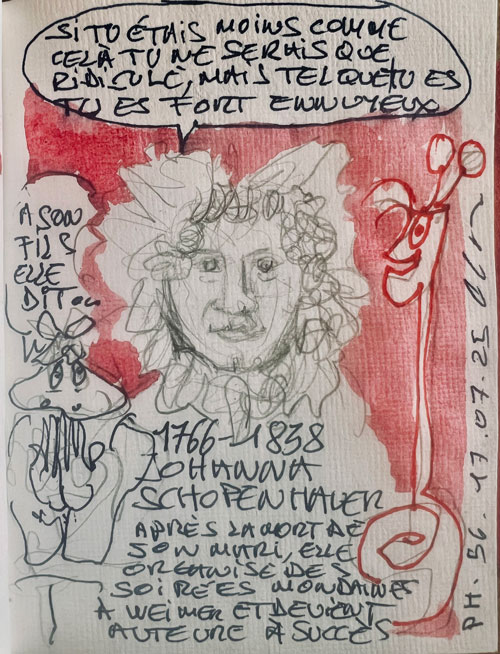 SI TU ÉTAIS MOINS COMME
CELÀ TU NE SERAIS QUE
RIDICULE, MAIS TEL QUE TU ES
TU ES FORT ENNUYEUX
A SON
FILS
ELLE
DIT...
1766-1838
JOHANNA
SCHOPENHAUER
APRÈS LA MORT DE
SON MARI, ELLE
ORGANISE DES
SOIREES MONDAINES
A WEIMER ET DEVIENT
AUTEURE À SUCCÈS
PH. 56. 17.07.25